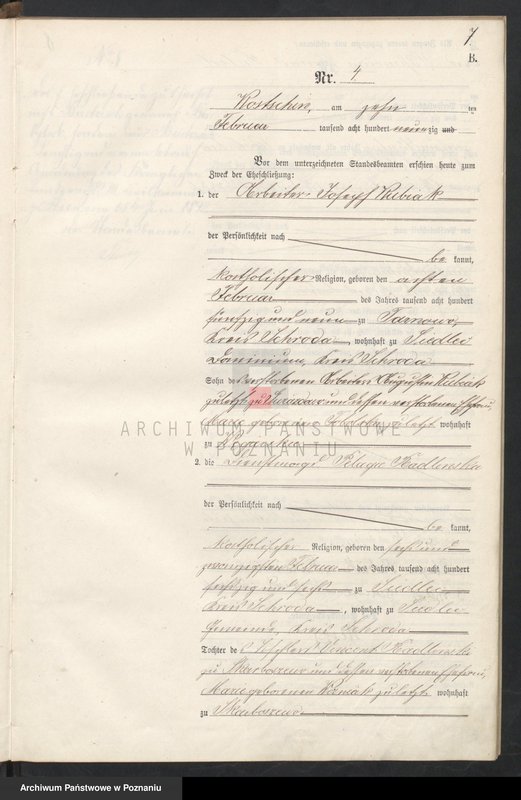 7
B.
Nr. 4
Kostschin, am zehn ten
Februar tausend acht hundert neunzig und
Vor dem unterzeichneten Standesbeamten erschien heute zum
Zweck der Eheschließung:
1. der Arbeiter Joseph Kubiak
der Persönlichkeit nach
be kannt,
katholischer Religion, geboren den achten
Februar des Jahres tausend acht hundert
fünfzig und neun zu Tarnowo,
Kreis Schroda, wohnhaft zu Siedlec
Dominium, Kreis Schroda
Sohn des verstorbenen Arbeiters Augustin Kubiak
zuletzt zu und dessen verstorbenen Ehefrau,
geborenen zuletzt wohnhaft
zu
2. die Pelagia Radlewska
der Persönlichkeit nach
be kannt,
katholischer Religion, geboren den sechs und
zwanzigsten Februar des Jahres tausend acht hundert
sechszig und sechs zu Siedlec
Kreis Schroda, wohnhaft zu Siedlec
Gemeinde, Kreis Schroda
Tochter des Vincent Radlewski
zu und dessen verstorbenen Ehefrau,
Marie geborenen zuletzt wohnhaft
zu
ARCHIWUM PAŃSTWOWE
W POZNANIU
Archiwum Państwowe w Poznaniu